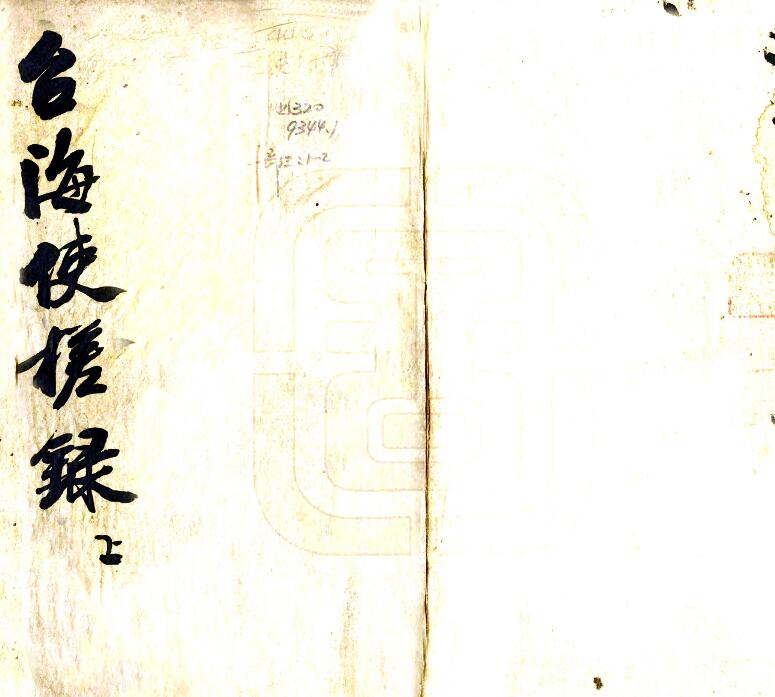 台海使槎録
上
320
9344.1